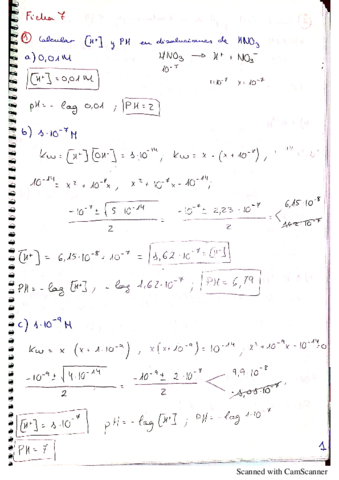 Ficha 7
① Calcular [H⁺] y PH en disoluciones de HNO₃
a) 0,01M HNO₃ → H⁺ + NO₃⁻
10⁻⁷
[H⁺] = 0,01M
pH = - log 0,01 ; PH = 2
b) 1·10⁻⁷ M
Kw = [H⁺][OH⁻] = 1·10⁻¹⁴, Kw = x · (x + 10⁻⁷),
10⁻¹⁴ = x² + 10⁻⁷x, x² + 10⁻⁷x - 10⁻¹⁴;
-10⁻⁷ ± √5·10⁻¹⁴ / 2 = -10⁻⁷ ± 2,23·10⁻⁷ / 2 < 6,15·10⁻⁸
[H⁺] = 6,15·10⁻⁸ + 10⁻⁷ = 1,62·10⁻⁷ = [H⁺]
PH = - log [H⁺], - log 1,62·10⁻⁷ ; PH = 6,79
c) 1·10⁻⁹ M
Kw = x (x + 1·10⁻⁹), x(x+10⁻⁹) = 10⁻¹⁴, x² + 10⁻⁹x - 10⁻¹⁴ = 0
-10⁻⁹ ± √4·10⁻¹⁴ / 2 = -10⁻⁹ ± 2·10⁻⁷ / 2 < 9,9·10⁻⁸
[H⁺] = 1·10⁻⁷ pH = - log [H⁺] ; PH = - log 1·10⁻⁷
PH = 7
1
Scanned with CamScanner